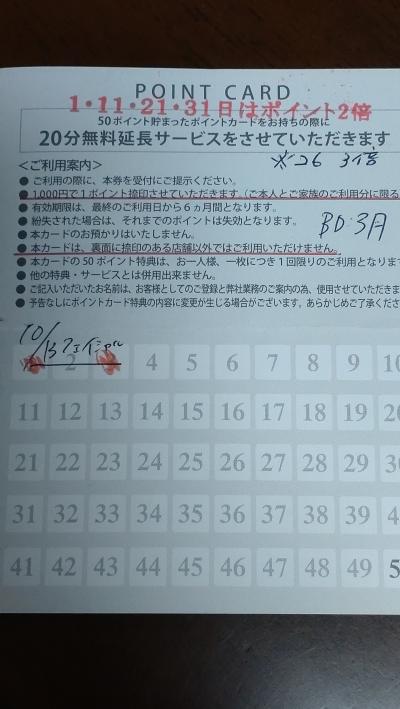 POINT CARD
1・11・21・31日はポイント2倍
50ポイント貯まったポイントカードをお持ちの際に
20分無料延長サービスをさせていただきます
※26 3倍
<ご利用案内>
● ご利用の際に、本券を受付にご提示ください。
● 1,000円で1ポイント捺印させていただきます。(ご本人とご家族のご利用分に限る
● 有効期限は、最終のご利用日から6ヵ月間となります。
● 紛失された場合は、それまでのポイントは失効となります。
BD.3月
● 本カードのお預かりはいたしません。
● 本カードは、裏面に捺印のある店舗以外ではご利用いただけません。
● 本カードの50ポイント特典は、お一人様、一枚につき1回限りのご利用となりま
● 他の特典・サービスとは併用出来ません。
● ご記入いただいたお名前は、お客様としてのご登録と弊社業務のご案内の為、使用させていただきま
● 予告なしにポイントカード特典の内容に変更が生じる場合がございます。あらかじめご了承くださ
10/13 フェイシャル
2 4 5 6 7 8 9 10
11 12 13 14 15 16 17 18 19 20
21 22 23 24 25 26 27 28 29 30
31 32 33 34 35 36 37 38 39 4
41 42 43 44 45 46 47 48 49 5